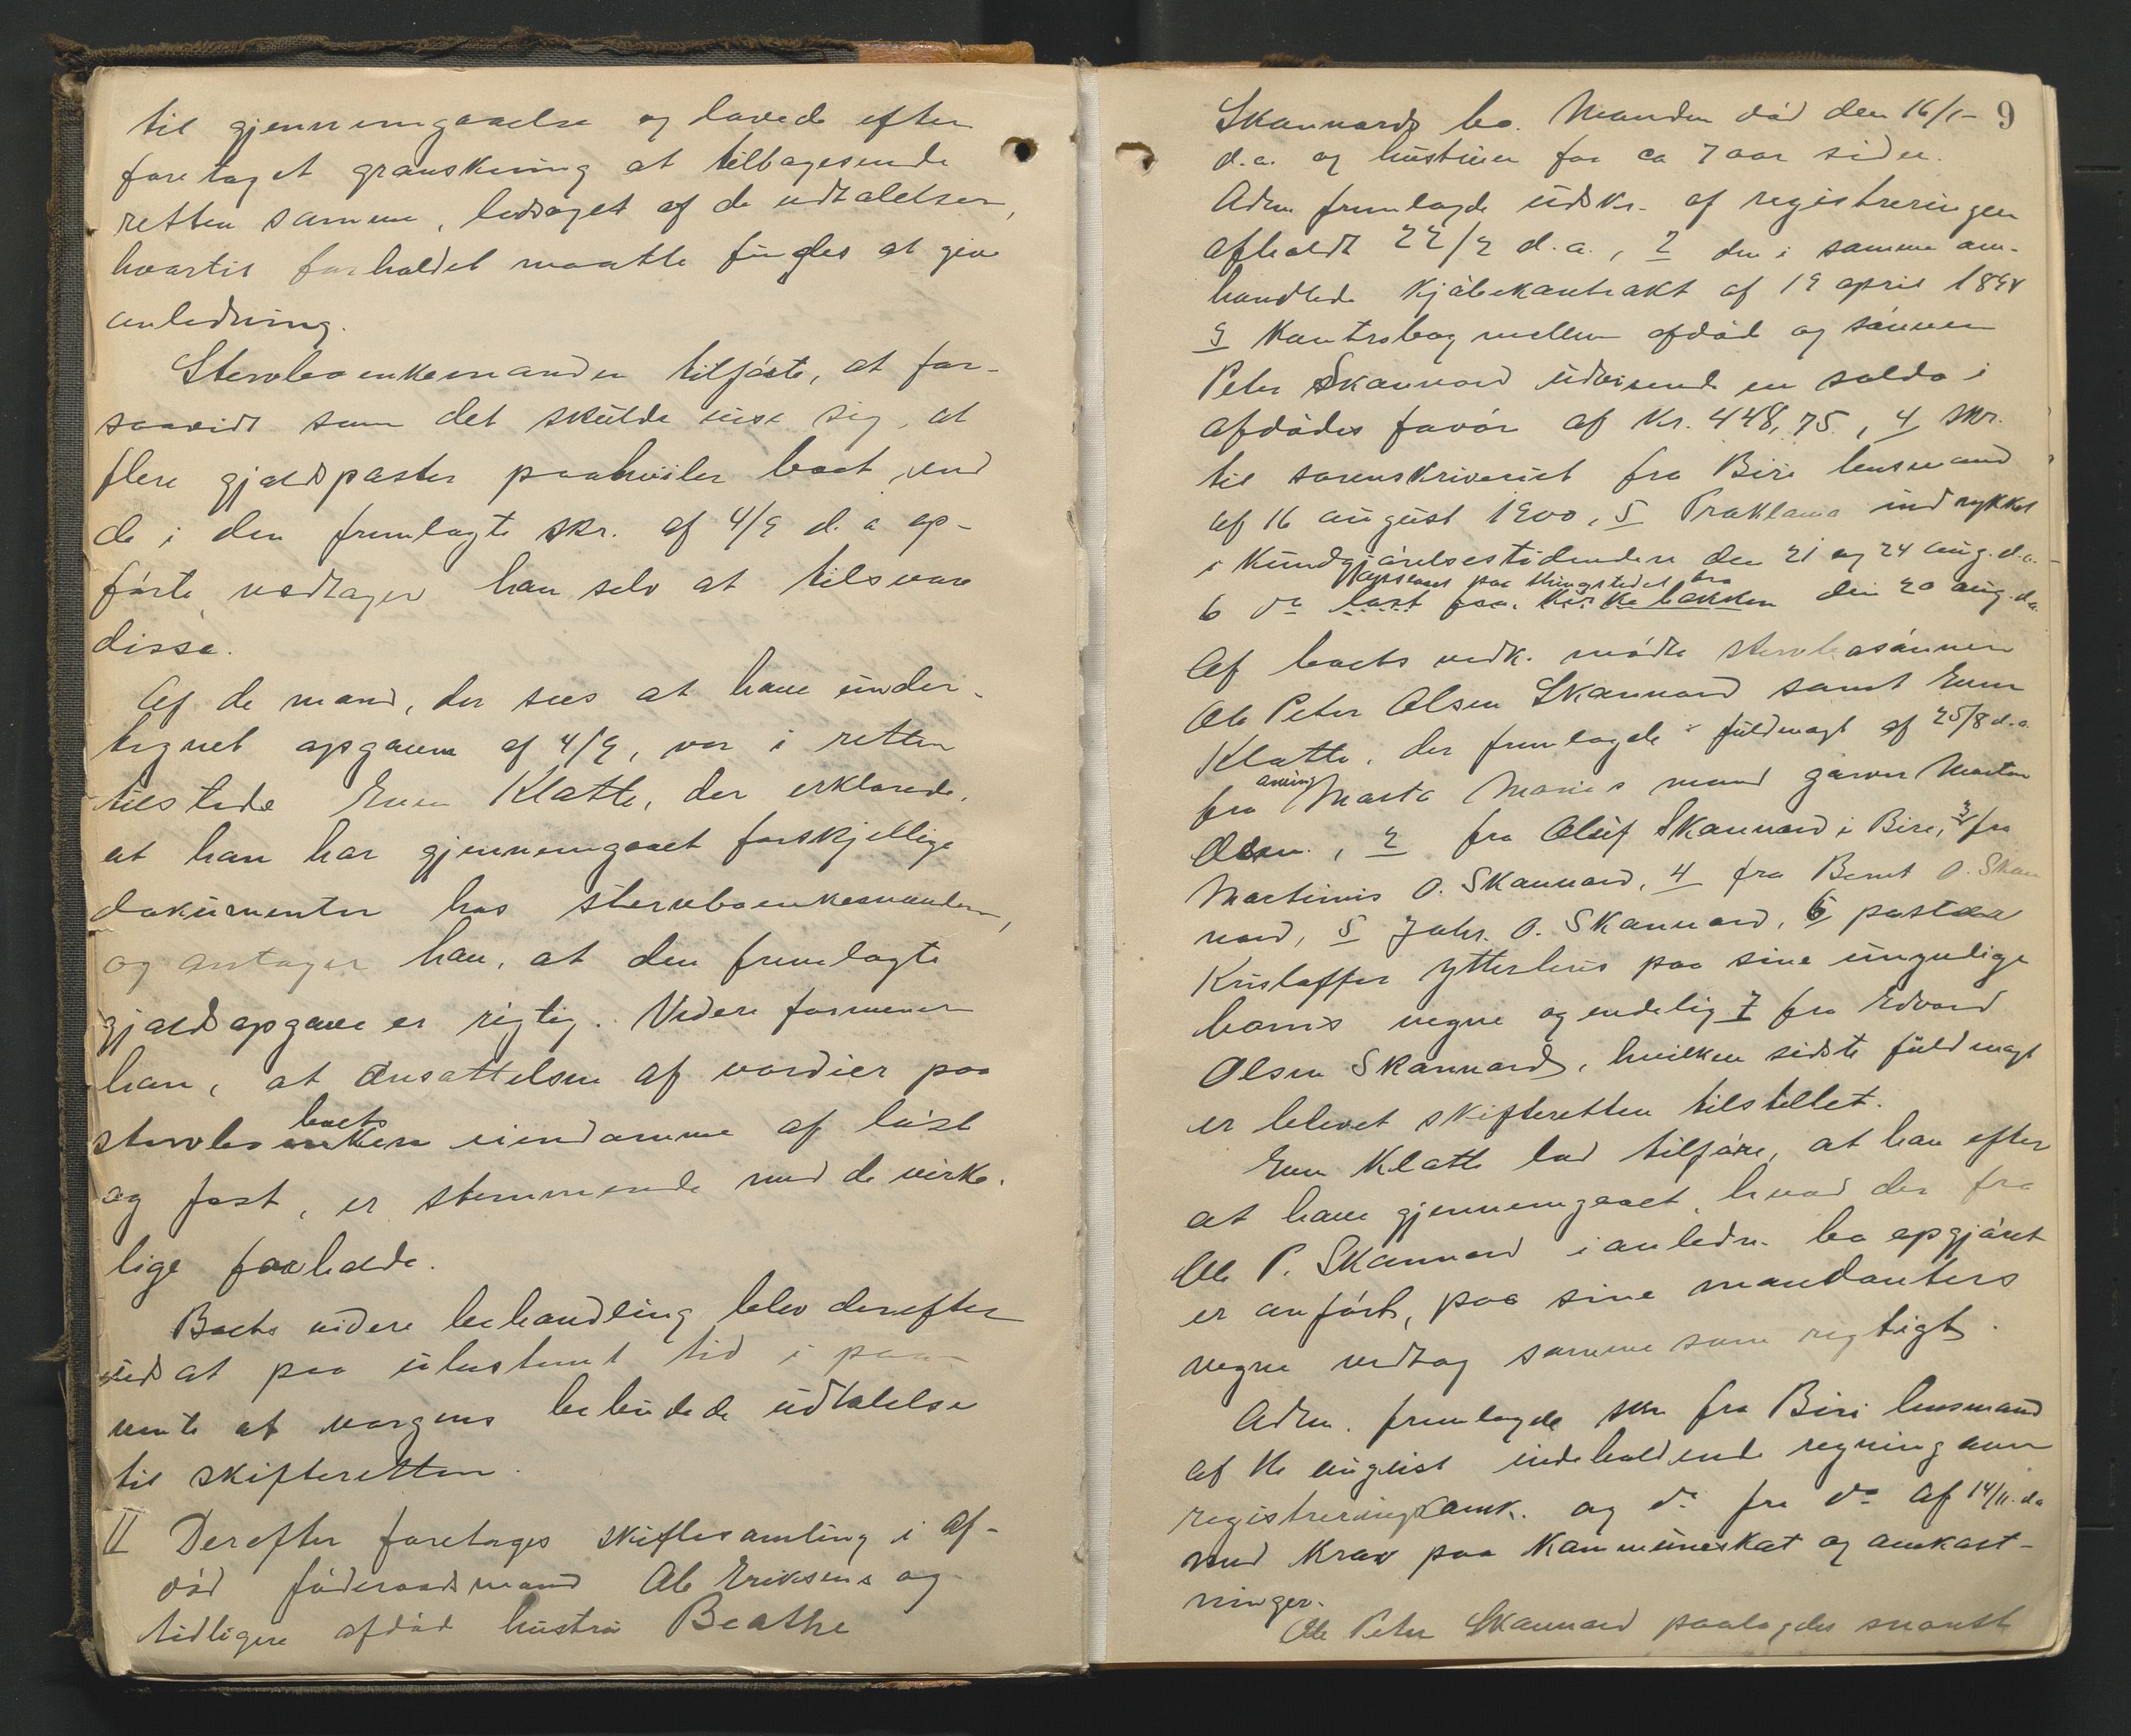 til gjennemgaaelse og lovede efter
foretaget granskning at tilbagesende
retten samme, ledsaget af de udtalelser,
hvortil forholdet maatte findes at give
anledning.
Stervboenkemanden tilførte, at for-
saavidt som det skulde vise sig, at
flere gjældsposter paahviler boet, end
de i den fremlagte skr. af 4/9 d. a op-
førte, vedtager han selv at tilsvare
disse.
Af de mænd, der sees at have under-
tegnet opgaven af 4/9, var i retten
tilstede Even Klatte, der erklærede,
at han har gjennemgaaet forskjellige
dokumenter hos stervboenkemanden,
og antager han, at den fremlagte
gjældsopgave er rigtig. Videre formener
han, at ansættelsen af værdier paa
stervboets eiendomme af løst
og fast, er stemmende med de virke-
lige forholde.
Boets videre behandling blev derefter
udsat paa ubestemt tid i paa-
vente af værgens bebudede udtalelse
til skifteretten.
II Derefter foretages skiftesamling i af-
død føderaadsmand Ole Eriksens og
tidligere afdød hustru Beathe
9
Skannards bo. Manden død den 16/1-
d.a. og hustruen for ca 7 aar siden.
Adm fremlagde udskr. af registreringen
afholdt 22/2 d.a., 2 den i samme om-
handlede kjøbekontrakt af 19 april 1898
3 Kontrabog mellem afdød og sønnen
Peter Skannard udvisende en saldo i
afdødes favør af Kr. 448,75, 4 skr.
til sorenskriveriet fra Biri lensmand
af 16 august 1900, 5 Proklama indrykket
i Kundgjørelsestidenden den 21 og 24 aug. d.a.-
opslaaet paa thingstedet fra
6 do læst fra kirkebakken den 20 aug. d.a.
Af boets vedk. mødte stervbosønnen
Ole Peter Olsen Skannard samt Even
Klatte, der fremlagde 1 fuldmagt af 25/8 d.a.
fra arving Marta Maries mand garver Morten
Olsen, 2 fra Oluf Skannard i Biri, 3 fra
Martinius O. Skannard, 4 fra Bernt O. Skan
nard, 5 Johs. O. Skannard, 6 postaa
Kristoffer Ytterhus paa sine umyndige
børns vegne og endelig 7 fra Edvard
Olsen Skannard, hvilken sidste fuldmagt
er blevet skifteretten tilstillet.
Even Klatte lod tilføre, at han efter
at have gjennemgaaet, hvad der fra
Ole P. Skannard i anledn. bo opgjøret
er anført, paa sine mandanters
vegne vedtog samme som rigtigt.
Adm. fremlagde skr fra Biri lensmand
af 16 august indeholdende regning over
registreringsomk. og do fra do af 14/11. da
med krav paa kommuneskat og omkost-
ninger.
Ole Peter Skannard paalagdes snarest